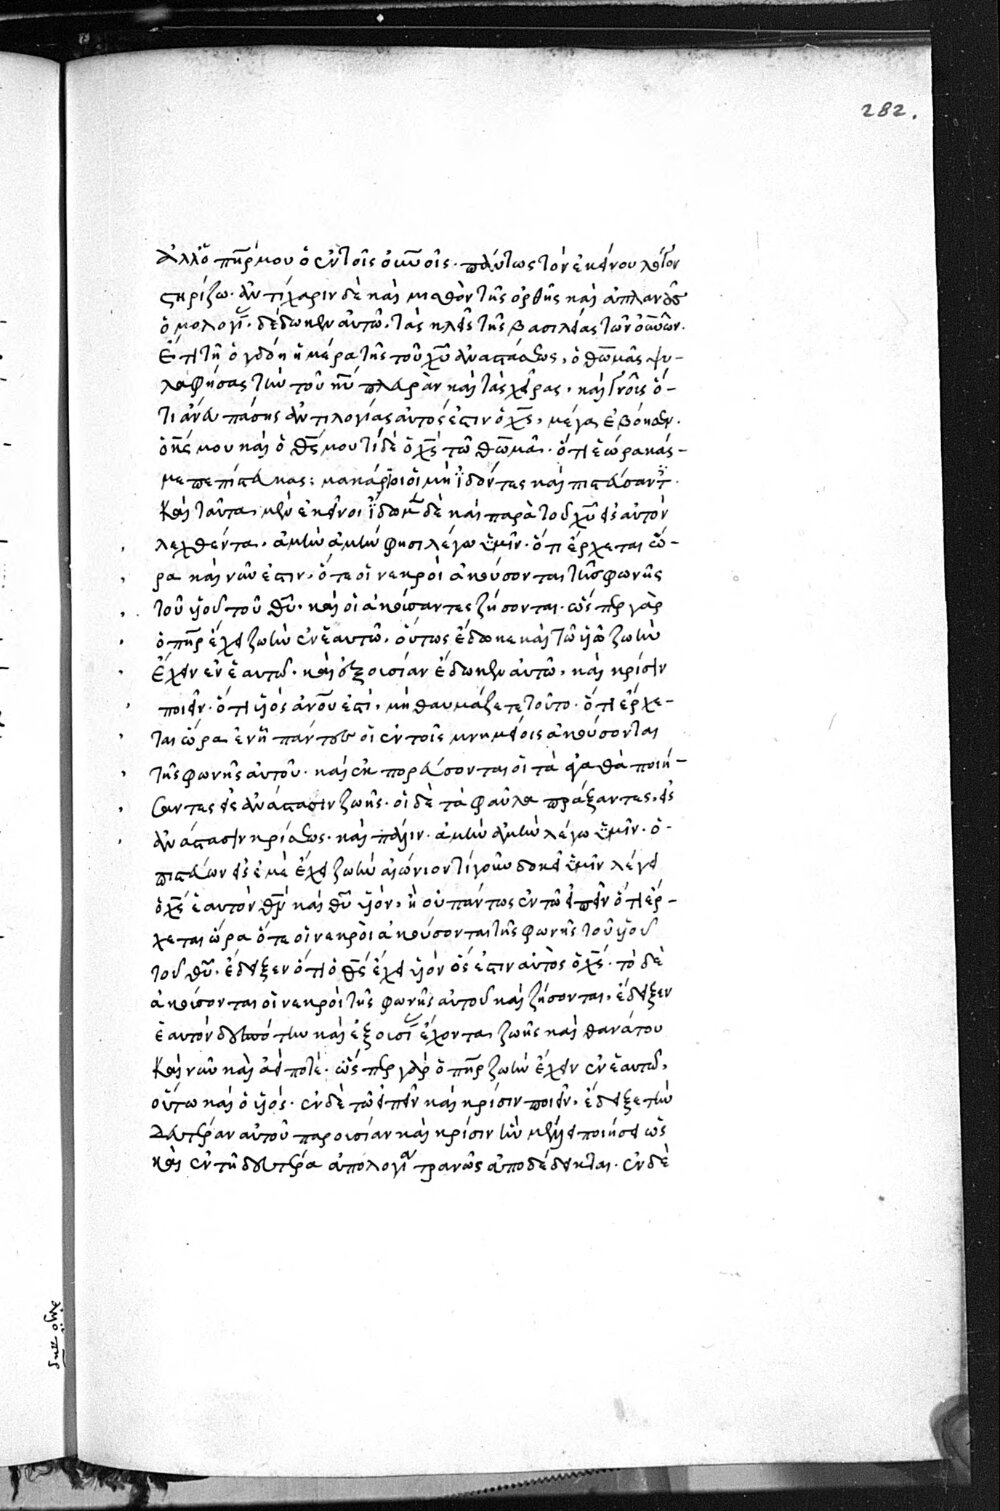 282.
ἀλλ' ὁ πη̅ρ μου ὁ ἐν τοῖς οὐνοῖς. πάντως τὸν ἐκείνου λόγον
στηρίζω. ἀντίχαριν δὲ καὶ μισθὸν τῆς ὀρθῆς καὶ ἀπλανοῦς
ὁμολογί. δέδωκεν αὐτῶ. τὰς κλεῖς τῆς βασιλείας τῶν οὐνῶν.
Ἐτι τῆ ὀγδόη ἡμέρα τῆς τοῦ χυ̅ ἀναστάσεως, ὁ θωμᾶς ψη-
λαφήσας τὴν τοῦ ιυ̅ πλευρὰν καὶ τὰς χεῖρας, καὶ γνοῖς ὅ-
τι ἄνευ πάσης ἀντιλογίας αὐτός ἐστιν ὁ χς̅, μέγα ἐβόησεν.
ὁ κς̅ μου καὶ ὁ θς̅ μου τί δὲ ὁ χς̅ τῶ θωμᾶ. ὅτι ἑώρακάς-
με πεπίστευκας: μακάριοι οἱ μὴ ἰδόντες καὶ πιστεύσαντ.
Καὶ ταῦτα μὲν ἐκεῖνοι ἴδωμ δὲ καὶ παρὰ τοῦ χυ̅ εἰς αὐτὸν
λεχθέντα. ἀμὴν ἀμὴν φησι λέγω ὑμῖν. ὅτι ἔρχεται ὥ-
ρα καὶ νῦν ἐστιν, ὅτε οἱ νεκροὶ ἀκούσονται τῆς φωνῆς
τοῦ υἱοῦ τοῦ θυ̅. καὶ οἱ ἀκούσαντες ζήσονται. ὥσπερ γὰρ
ὁ πη̅ρ ἔχει ζωὴν ἐν ἑαυτῶ. οὕτως ἔδωκε καὶ τῶ υἱῶ ζωὴν
ἔχειν ἐν ἑαυτῶ. καὶ ἐξουσίαν ἔδωκεν αὐτῶ, καὶ κρίσιν
ποιεῖν. ὅτι υἱὸς ἀνου̅ ἐστί, μὴ θαυμάζετε τοῦτο. ὅτι ἔρχε-
ται ὥρα ἐν ἧ πάντες οἱ ἐν τοῖς μνημείοις ἀκούσονται
τῆς φωνῆς αὐτοῦ. καὶ ἐκπορεύσονται οἱ τὰ ἀγαθὰ ποιή-
σαντες εἰς ἀνάστασιν ζωῆς. οἱ δὲ τὰ φαῦλα πράξαντες, εἰς
ἀνάστασιν κρίσεως. καὶ πάλιν. ἀμὴν ἀμὴν λέγω ὑμῖν. ὁ-
πιστεύων εἰς ἐμὲ ἔχει ζωὴν αἰώνιον τί γοῦν δοκεῖ ὑμῖν λέγει
ὁ χς̅ ἑαυτὸν θν̅ καὶ θυ̅ υἱόν, ἢ οὐ πάντως ἐν τῶ εἰπεῖν ὅτι ἔρ-
χεται ὥρα ὅτε οἱ νεκροὶ ἀκούσονται τῆς φωνῆς τοῦ υἱοῦ
τοῦ θυ̅. ἔδειξεν ὅτι ὁ θς̅ ἔχει υἱὸν ὅς ἐστιν αὐτὸς ὁ χς̅. τὸ δὲ
ἀκούσονται οἱ νεκροὶ τῆς φωνῆς αὐτοῦ καὶ ζήσονται, ἔδειξεν
ἑαυτὸν δεσπότην καὶ ἐξουσί ἔχοντα ζωῆς καὶ θανάτου
καὶ νῦν καὶ ἀεί ποτέ. ὥσπερ γὰρ ὁ πη̅ρ ζωὴν ἔχειν ἐν ἑαυτῶ,
οὕτω καὶ ὁ υἱός. ἐν δὲ τῶ εἰπεῖν καὶ κρίσιν ποιεῖν, ἔδειξε τὴν
δευτέραν αὐτοῦ παρουσίαν καὶ κρίσιν ἣν μέλλει ποιήσει ὡς
καὶ ἐν τῆ δευτέρα ἀπολογία τρανῶς ἀποδέδεικται. ἐν δὲ